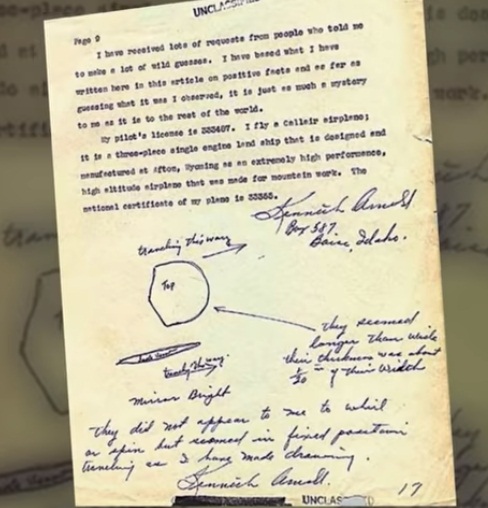 UNCLASSIFIED
Page 9
I have received lots of requests from people who told me
to make a lot of wild guesses. I have based what I have
written here in this article on positive facts and as far as
guessing what it was I observed, it is just as much a mystery
to me as it is to the rest of the world.
My pilot's license is 333487. I fly a Callair airplane;
it is a three-place single engine land ship that is designed and
manufactured at Afton, Wyoming as an extremely high performance,
high altitude airplane that was made for mountain work. The
national certificate of my plane is 33355.
Kenneth Arnold
Box 587
Boise, Idaho.
traveling this way
Top
they seemed
longer than wide
their thickness was about
1/20 of their width
traveling this way.
Mirror Bright
They did not appear to me to whirl
or spin but seemed in fixed position
traveling as I have made drawing.
Kenneth Arnold.
UNCLAS
17